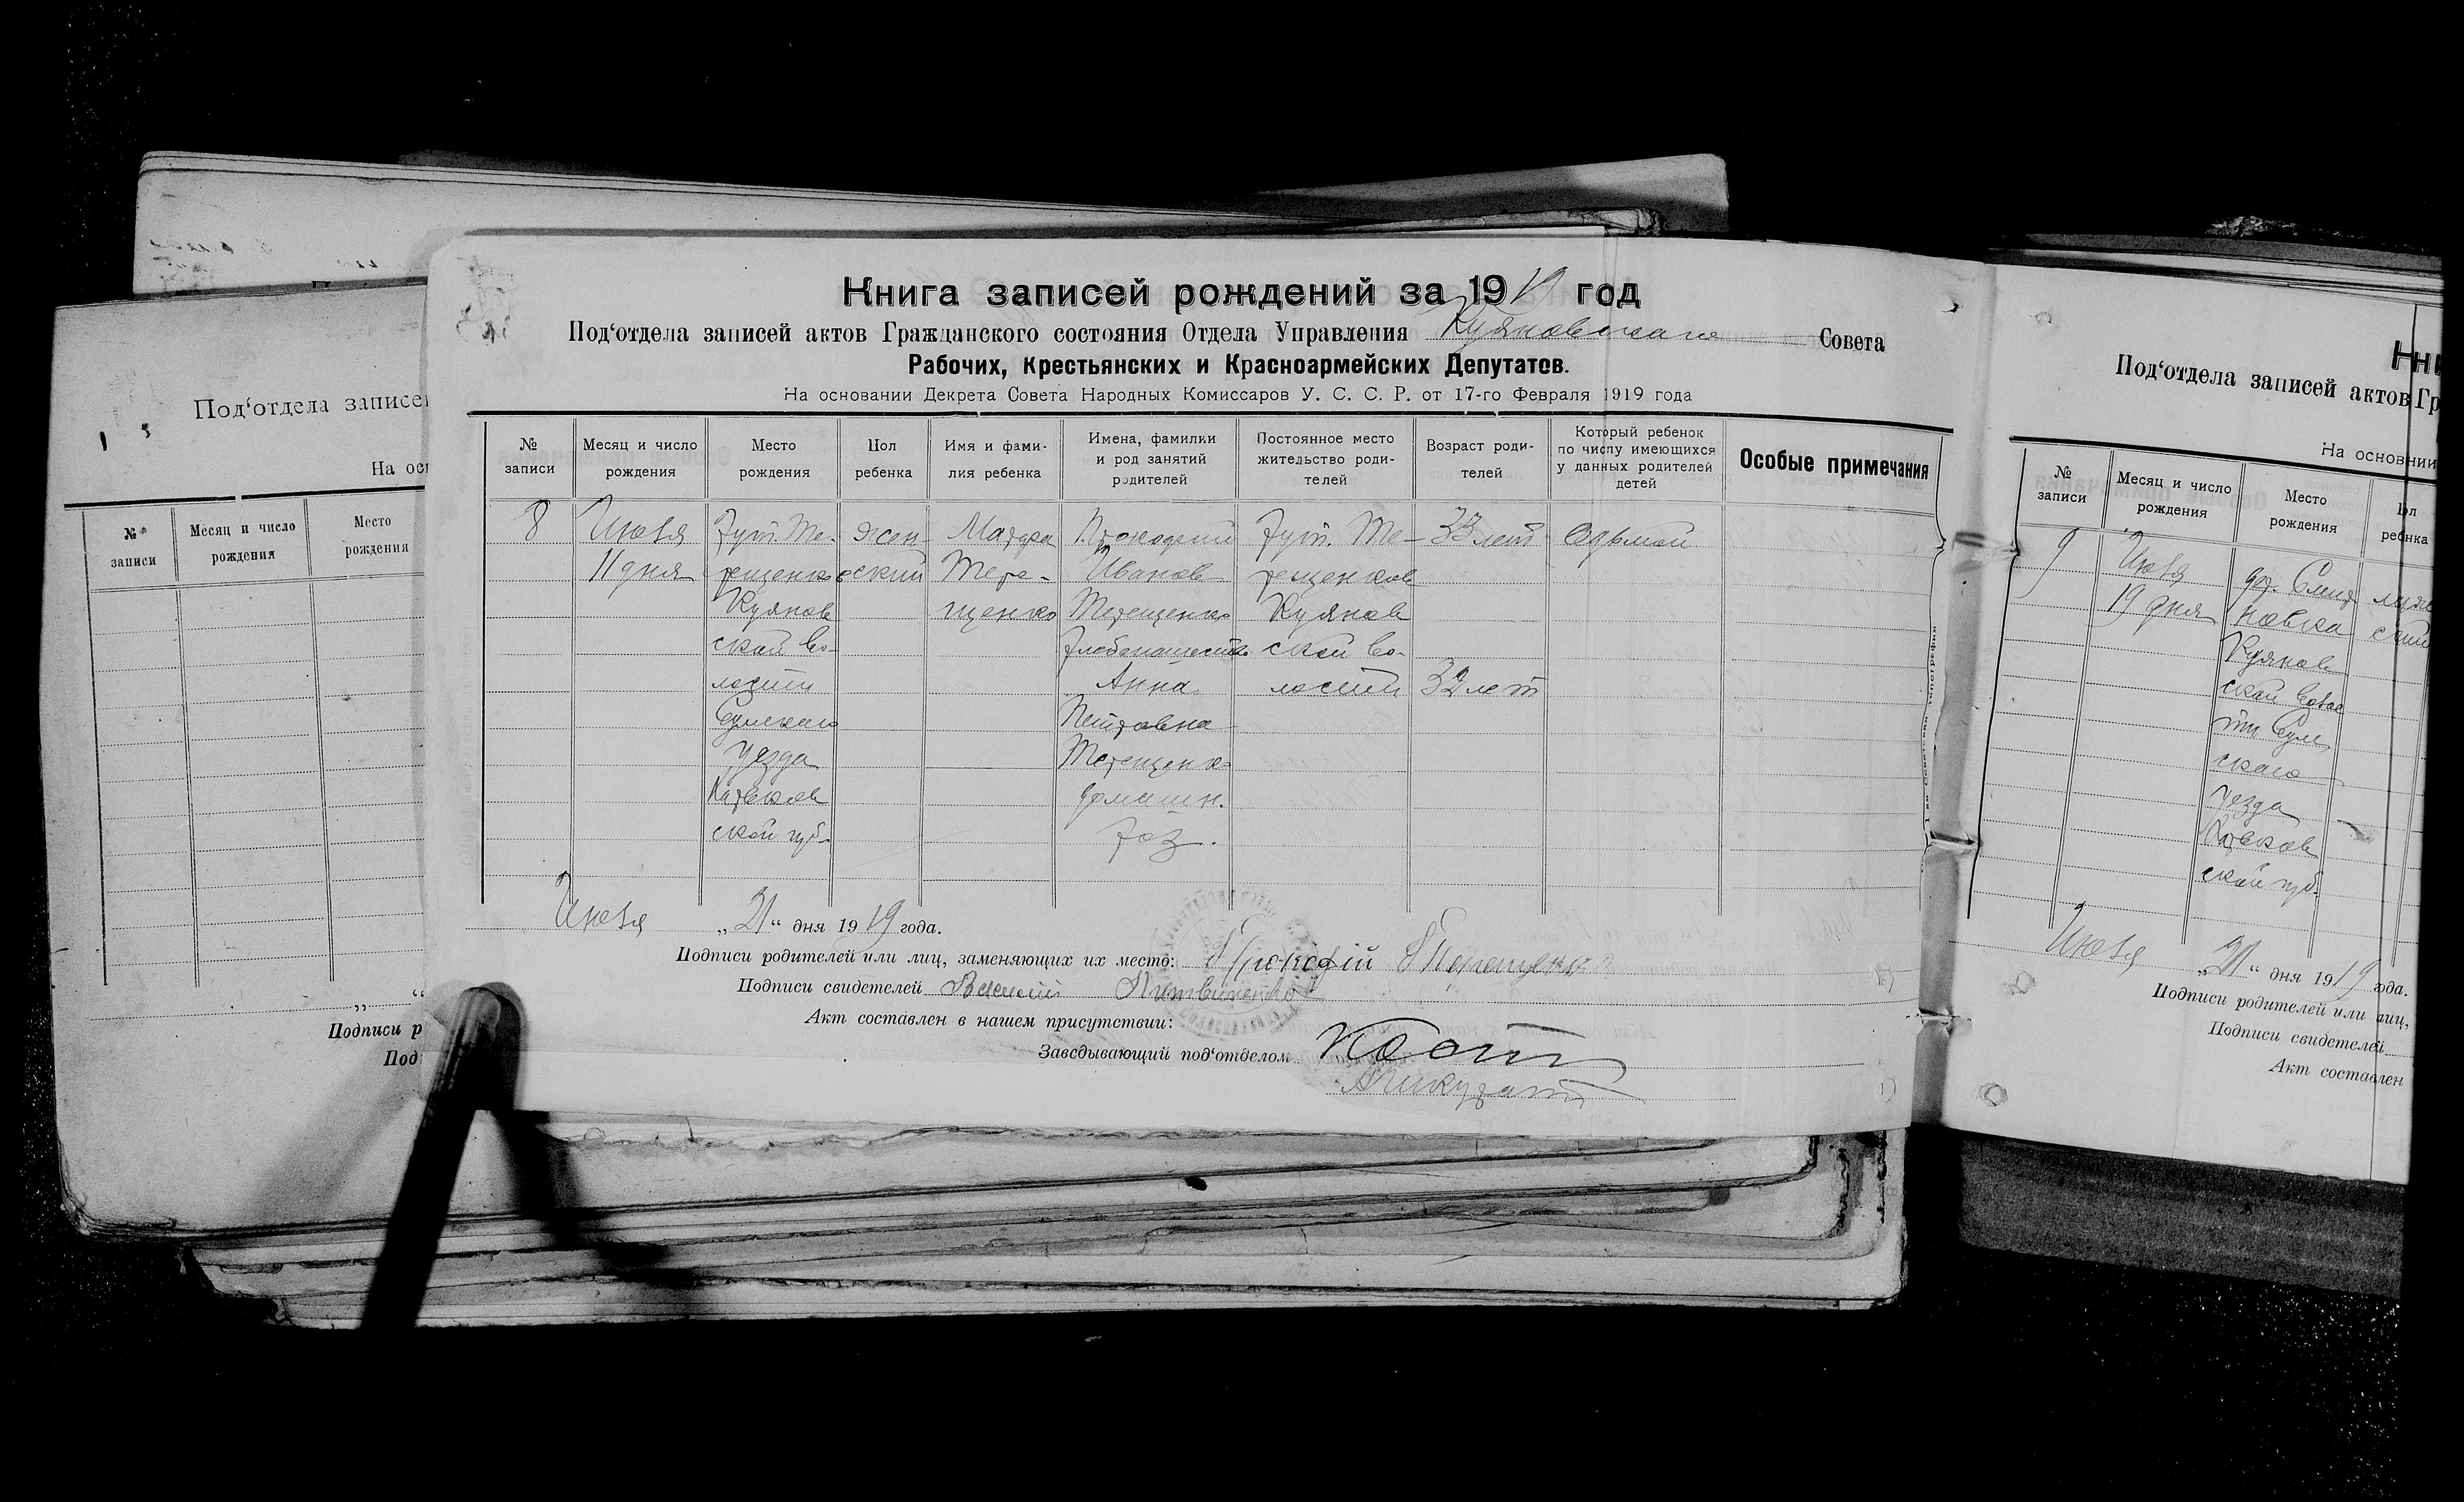 Книга записей рождений за 1919 год
Под‘отдела записей актов Гражданского состояния Отдела Управления Куяновскаго Совета
Рабочих, Крестьянских и Красноармейских Депутатов.
На основании Декрета Совета Народных Комиссаров У. С. С. Р. от 17-го Февраля 1919 года
№ записи
Месяц и число рождения
Место рождения
Пол ребенка
Имя и фами-
лия ребенка
Имена, фамилии
и род занятий
родителей
Постоянное место
жительство роди-
телей
Возраст роди-
телей
Который ребенок
по числу имеющихся
у данных родителей
детей
Особые примечания
8
Июля
11 дня
Хут. Те-
рещенков
Куянов
ской во-
лости
Сумскаго
уезда
Харьков
ской губ.
жен-
ский
Матра
Тере-
щенко
Прокофий
Иванов
Терещенко
Хлебопашество
Анна
Петровна
Терещенко
домашн.
хоз.
Хут. Те-
рещенков
Куянов
ской во-
лости
33 лет
32 лет
седьмой
Июля „21“ дня 1919 года.
Подписи родителей или лиц, заменяющих их место: Прокофій Терещенко
Подписи свидетелей Литвиненко
Акт составлен в нашем присутствии:
Заведывающий под‘отделом
Под‘отдела записе
На ос
№ записи
Месяц и число рождения
Место рождения
„ “
Подписи р
Под
Кни
Под‘отдела записей актов Гр
На основнии
№ записи
Месяц и число рождения
Место рождения
9
Июля
19 дня
новка
Куянов
ской волос
ти Сум
скаго
уезда
Харьков
ской губ.
муж
ский
Июля „21“ дня 1919 года.
Подписи родителей или лиц,
Подписи свидетелей
Акт составлен